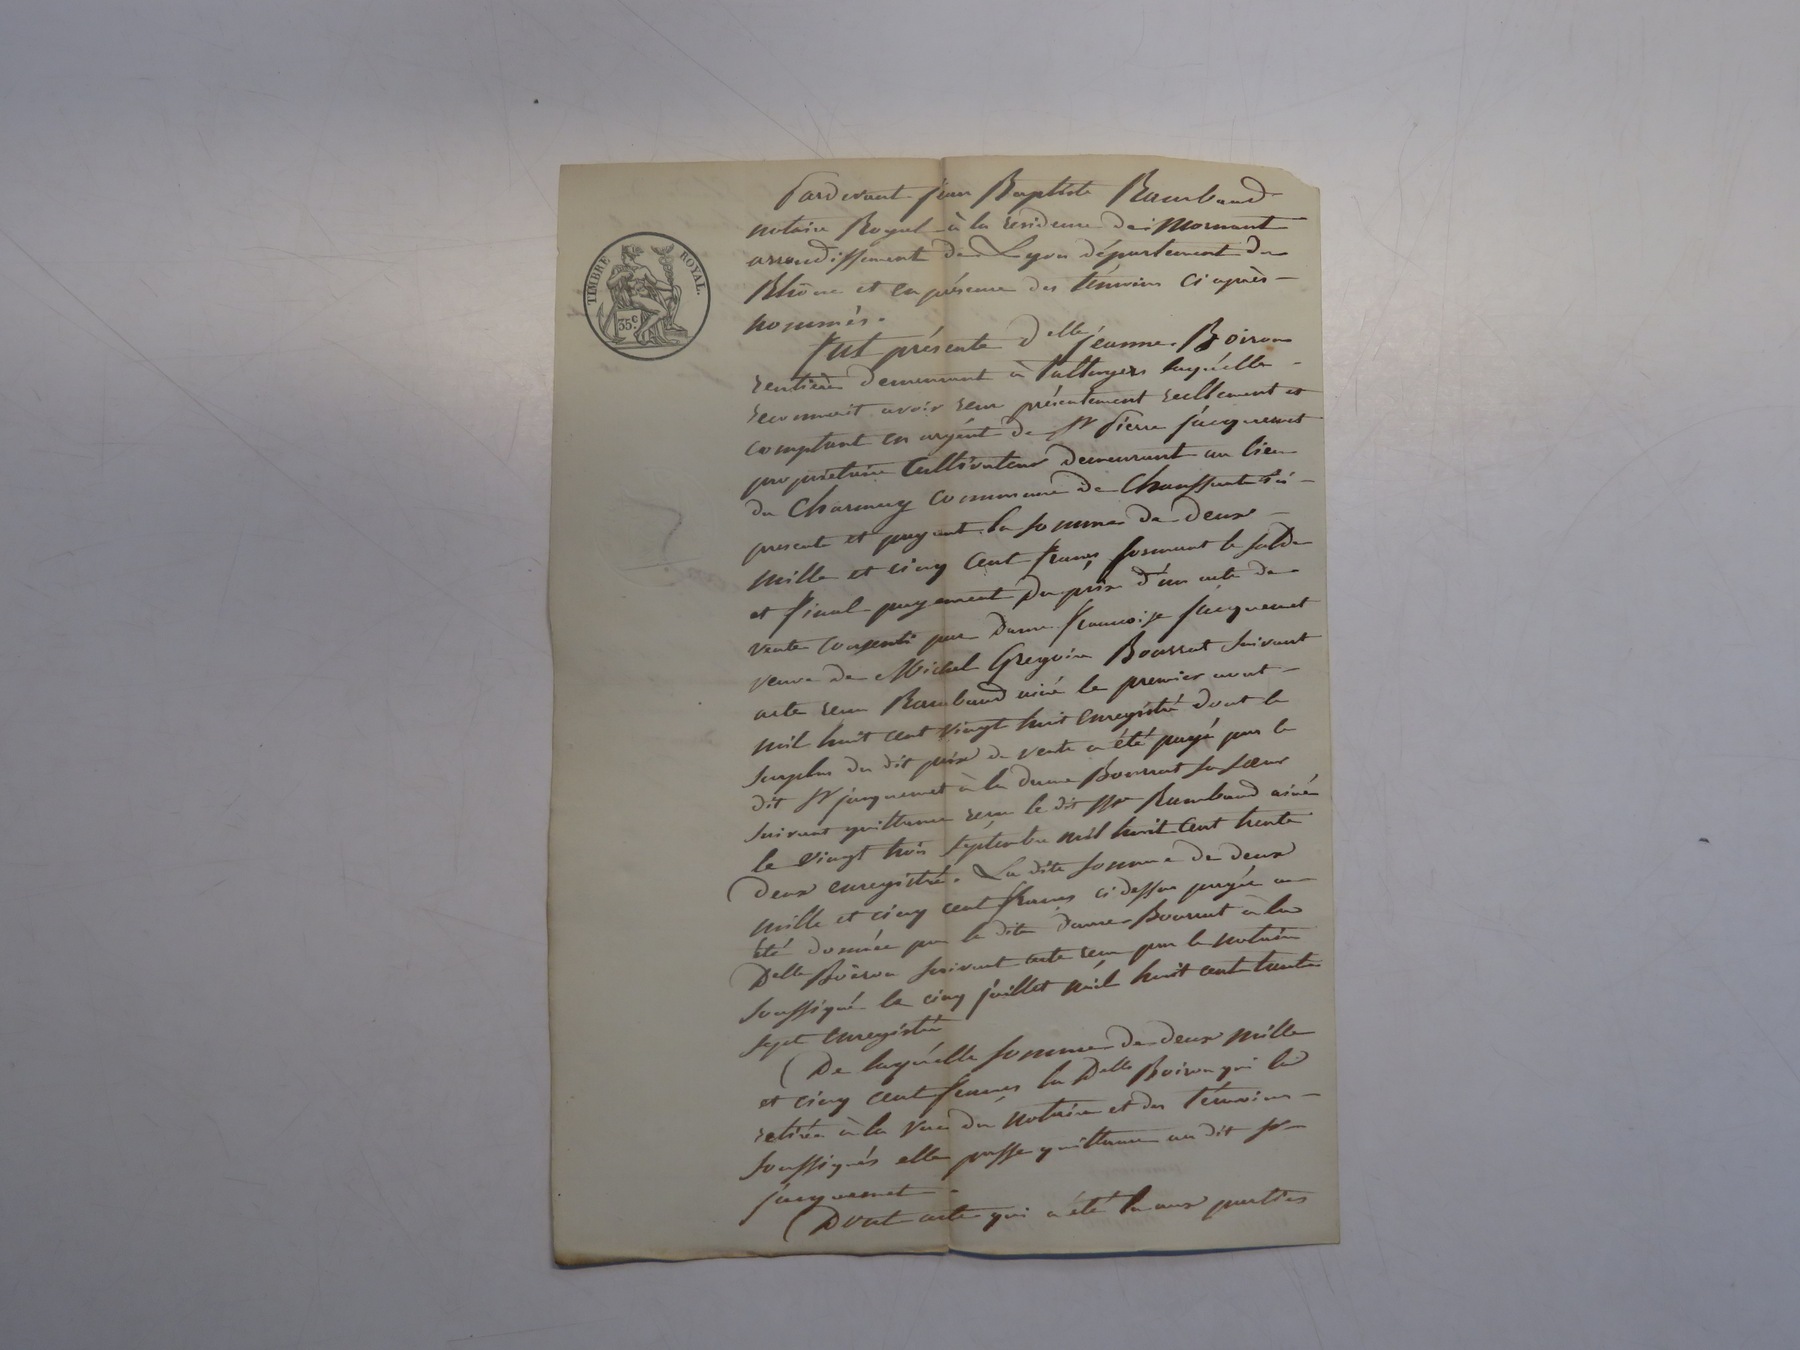 TIMBRE ROYAL.
35c
Pardevant Jean Baptiste Rambaud
notaire Royal à la résidence de Mornant
arrondissement de Lyon département du
Rhône et en présence des témoins ci après
nommés.
Fut présente delle jeanne Boiron
rentière demeurant à laquelle
reconnait avoir reçu présentement réellement et
comptant en argent de Sr Pierre jacquemet
propriétaire Cultivateur demeurant au lieu
du Charmey commune de Chaussant ici
present et payant la somme de deux
mille et cinq cent francs formant le solde
et final payement du prix d'un acte de
vente consenti par dame francoise jacquemet
veuve de Michel Gregoire Bourrat suivant
acte reçu Rambaud ainé le premier aout
mil huit cent vingt huit enregistré dont le
surplus du dit prix de vente a été payé par le
dit Sr jacquemet à la dame Bourrat sa sœur
suivant quittance reçu le dit Me Rambaud ainé
le vingt trois septembre mil huit cent trente
deux enregistré. La dite somme de deux
mille et cinq cent francs ci dessus payée a
été donnée par la dite dame Bourrat à la
Delle Boiron suivant acte reçu par le notaire
soussigné le cinq juillet mil huit cent trente
sept enregistré
De laquelle somme de deux mille
et cinq cent francs la Delle Boiron qui la
retirée à la vue du notaire et des témoins
soussignés elle passe quittance au dit Sr
jacquemet.
Dont acte qui a été lu aux parties